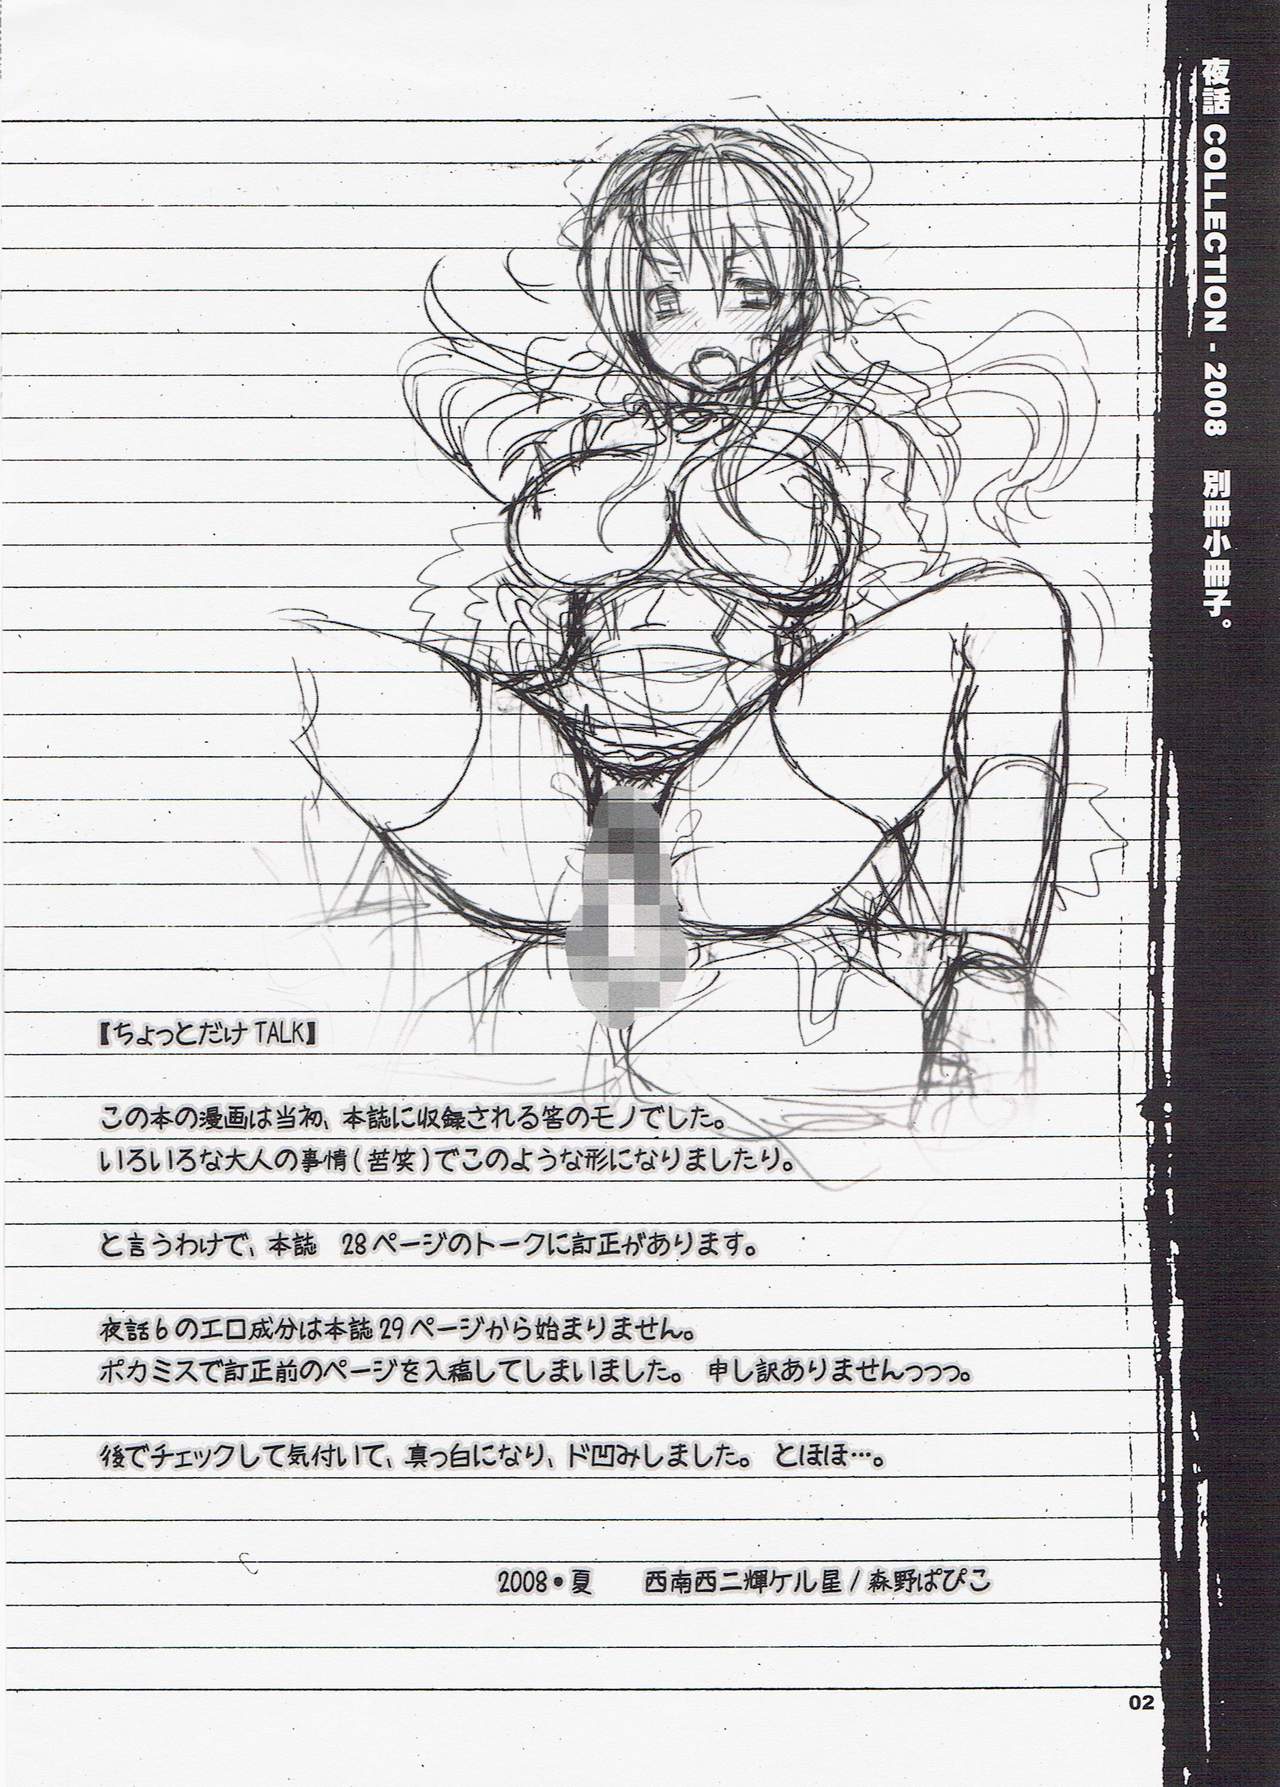 夜話 COLLECTION - 2008 別冊小冊子。
【ちょっとだけTALK】
この本の漫画は当初、本誌に収録される筈のモノでした。
いろいろな大人の事情(苦笑)でこのような形になりましたり。
と言うわけで、本誌 28ページのトークに訂正があります。
夜話6のエロ成分は本誌29ページから始まりません。
ポカミスで訂正前のページを入稿してしまいました。 申し訳ありませんっっっ。
後でチェックして気付いて、真っ白になり、ド凹みしました。 とほほ…。
2008•夏 西南西二輝ケル星/森野ぱぴこ
02